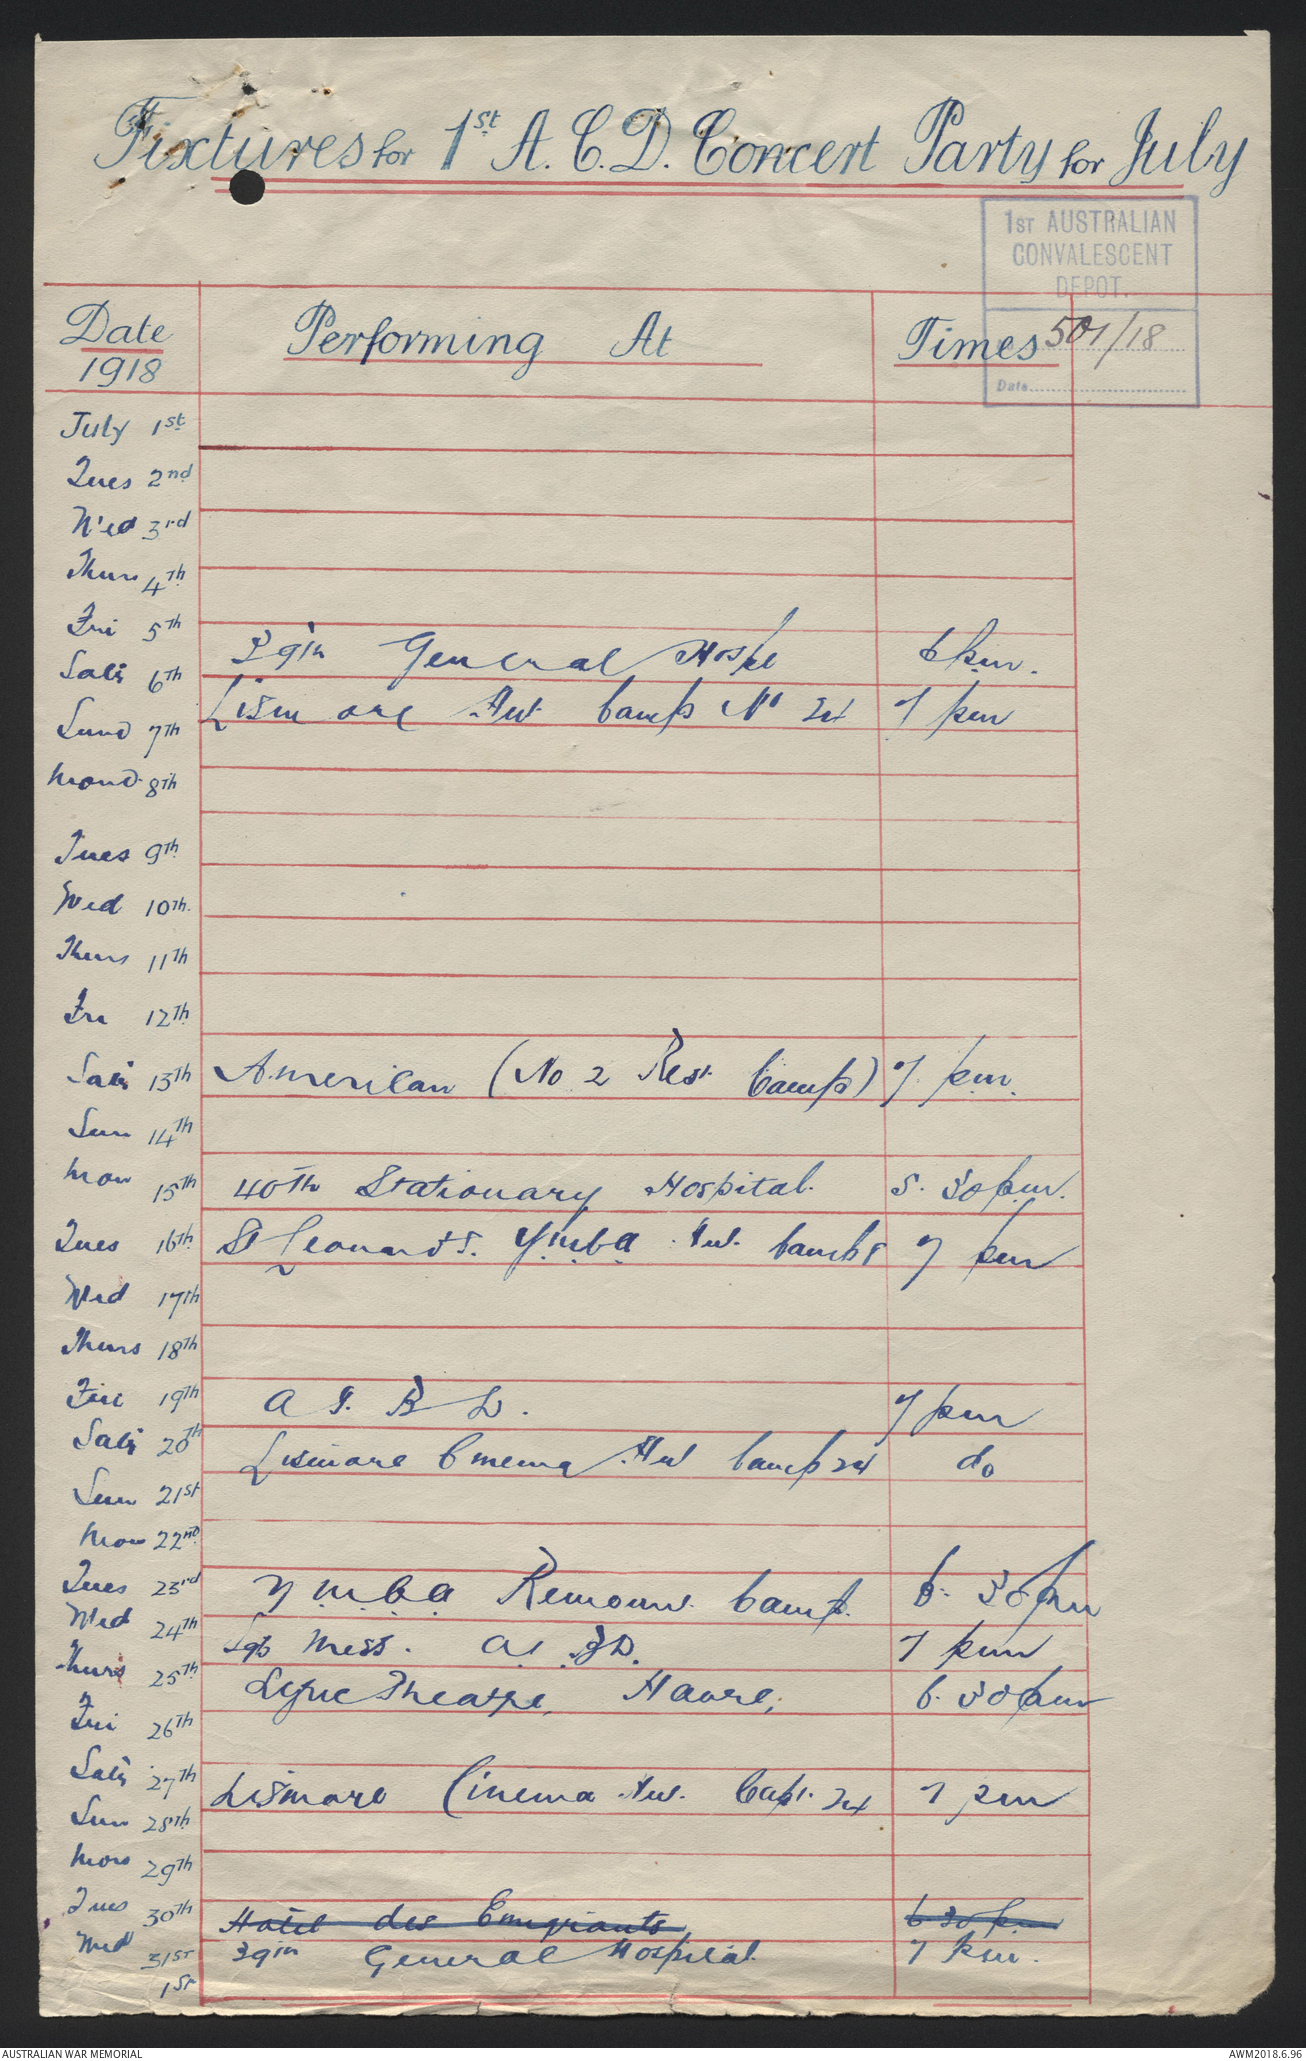 Fixtures for 1st A.C.D. Concert Party for July
1ST AUSTRALIAN
CONVALESCENT
DEPOT.
501/18
Date
Date 1918 Performing At Times
July 1st
Tues 2nd
Wed 3rd
Thurs 4th
Fri 5th 39th General Hospl 6 pm.
Sat 6th Lismore Hut Camp No 24 7 pm
Sund 7th
Mond 8th
Tues 9th
Wed 10th
Thurs 11th
Fri 12th
Sat 13th American (No 2 Rest Camp) 7. pm.
Sun 14th
Mon 15th 40th Stationary Hospital. 5.30 pm.
Tues 16th St Leonards. Y.M.C.A. Hut. Camp 8 7 pm
Wed 17th
Thurs 18th
Fri 19th A I. B D. 7 pm
Sat 20th Lismore Cinema Hut Camp 24 do
Sun 21st
Mon 22nd
Tues 23rd Y.M.C.A Remount Camp. 6.30 pm
Wed 24th Sgts Mess. A I B D. 7 pm
Thurs 25th Lyric Theatre, Havre, 6.30 pm
Fri 26th
Sat 27th Lismore Cinema Hut. Cap. 24 7 pm
Sun 28th
Mon 29th
Tues 30th Hotel des Emigrants 6 30 pm
Wed 31st 39th General Hospital 7 pm.
1st
AUSTRALIAN WAR MEMORIAL
AWM2018.6.96